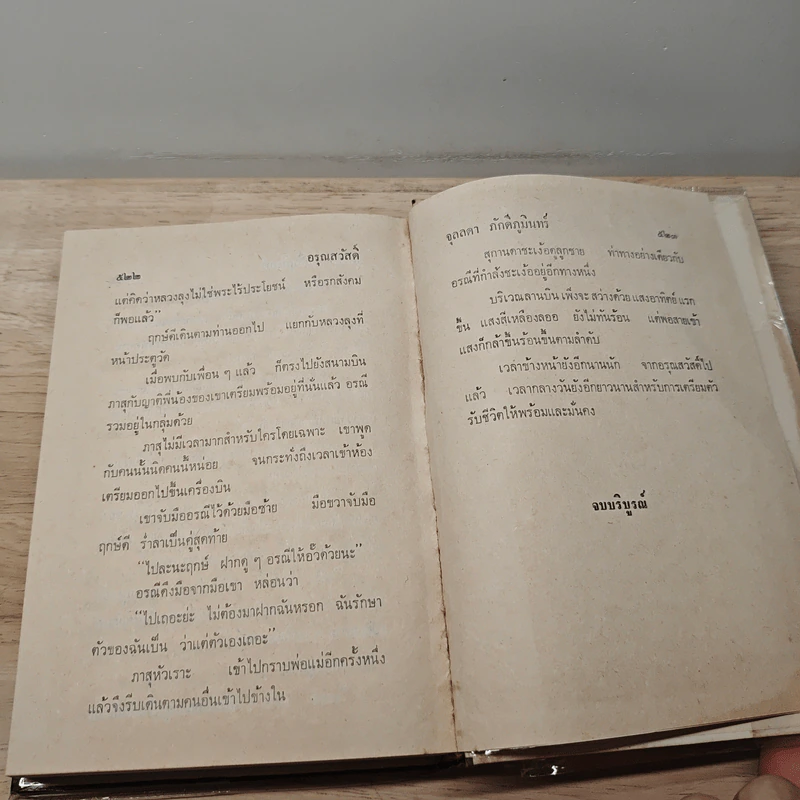 ๕๒๒ อรุณสวัสดิ์
แต่คิดว่าหลวงลุงไม่ใช่พระไร้ประโยชน์ หรือรกสังคม
ก็พอแล้ว"
ฤกษ์ดีเดินตามท่านออกไป แยกกับหลวงลุงที่
หน้าประตูวัด
เมื่อพบกับเพื่อน ๆ แล้ว ก็ตรงไปยังสนามบิน
ภาสุกับญาติพี่น้องของเขาเตรียมพร้อมอยู่ที่นั่นแล้ว อรณี
รวมอยู่ในกลุ่มด้วย
ภาสุไม่มีเวลามากสำหรับใครโดยเฉพาะ เขาพูด
กับคนนั้นนิดคนนี้หน่อย จนกระทั่งถึงเวลาเข้าห้อง
เตรียมออกไปขึ้นเครื่องบิน
เขาจับมืออรณีไว้ด้วยมือซ้าย มือขวาจับมือ
ฤกษ์ดี ร่ำลาเป็นคู่สุดท้าย
"ไปละนะฤกษ์ ฝากดู ๆ อรณีให้อั๊วด้วยนะ"
อรณีดึงมือจากมือเขา หล่อนว่า
"ไปเถอะย่ะ ไม่ต้องมาฝากฉันหรอก ฉันรักษา
ตัวของฉันเป็น ว่าแต่ตัวเองเถอะ"
ภาสุหัวเราะ เข้าไปกราบพ่อแม่อีกครั้งหนึ่ง
แล้วจึงรีบเดินตามคนอื่นเข้าไปข้างใน
จุลลดา ภักดีภูมินทร์ ๕๒๓
สุกานดาชะเง้อดูลูกชาย ท่าทางอย่างเดียวกับ
อรณีที่กำลังชะเง้ออยู่อีกทางหนึ่ง
บริเวณลานบิน เพิ่งจะ สว่างด้วย แสงอาทิตย์ แรก
ขึ้น แสงสีเหลืองลออ ยังไม่ทันร้อน แต่พอสายเข้า
แสงก็กล้าขึ้นร้อนขึ้นตามลำดับ
เวลาข้างหน้ายังอีกนานนัก จากอรุณสวัสดิ์ไป
แล้ว เวลากลางวันยังอีกยาวนานสำหรับการเตรียมตัว
รับชีวิตให้พร้อมและมั่นคง
จบบริบูรณ์